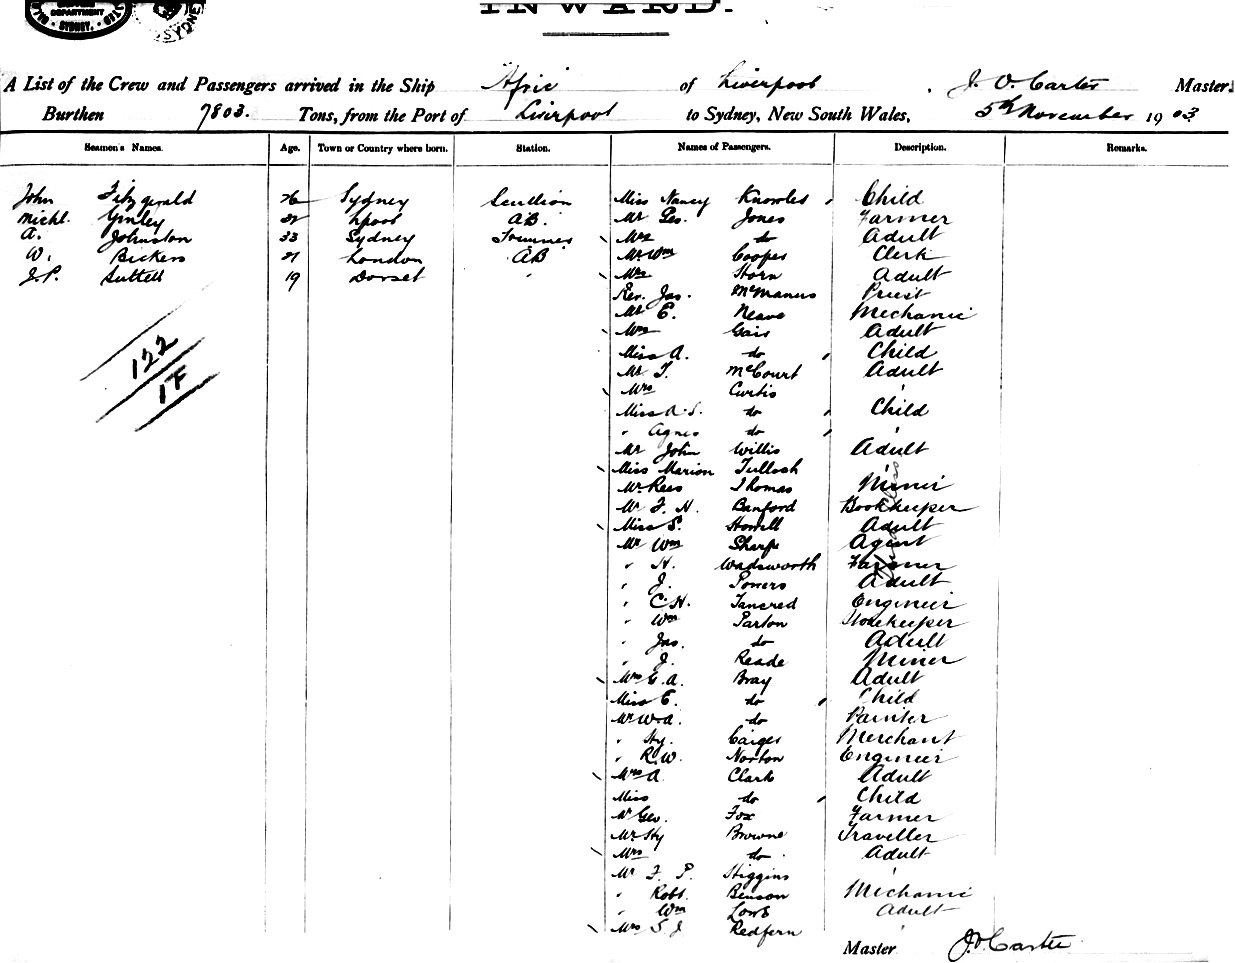 CUSTOMS DEPARTMENT SYDNEY.
SYDNEY
INWARD.
A List of the Crew and Passengers arrived in the Ship Afric of Liverpool, J. O. Carter Master,
Burthen 7803. Tons, from the Port of Liverpool to Sydney, New South Wales, 5th November 1903
Seamen's Names. Age. Town or Country where born. Station. Names of Passengers. Description. Remarks.
John Fitzgerald 26 Sydney Scullion Miss Nancy Knowles Child
Michl. Ginley L'pool A.B. Mr Jones Farmer
A. Johnston 33 Sydney Trimmer Mrs do Adult
W. Bickers 21 London AB Mr Wm Cooper Clerk
J.P. Suttell 19 Dorset ' Mrs Horn Adult
Rev. Jas. McManus Priest
Mr E. Neave Mechanic
Mrs Gais Adult
Miss A. do Child
122
Mr T. McCourt Adult
1F
Mrs Curtis '
Miss A.S. do Child
" Agnes do '
Mr John Willis Adult
Miss Marion Tulloch '
Mr Rees Thomas Miner
Mr F. H. Banford Bookkeeper
Miss S. Howell Adult
Mr Wm Sharp Agent
" H. Wadsworth Farmer
" J. Powers Adult
" C.H. Tancred Engineer
" Wm Parton Storekeeper
" Jas. do Adult
" J. Reade Miner
Mrs G.A. Bray Adult
Miss E. do Child
Mr W.A. do Painter
" Hy. Caiger Merchant
" R.W. Norton Engineer
Mrs A Clark Adult
Miss do Child
Mr Geo. Fox Farmer
Mr Hy Browne Traveller
Mrs do Adult
Mr F. P. Higgins '
" Robt. Benson Mechanic
" Wm Lowe Adult
Mrs S J Redfern
Master J.O. Carter